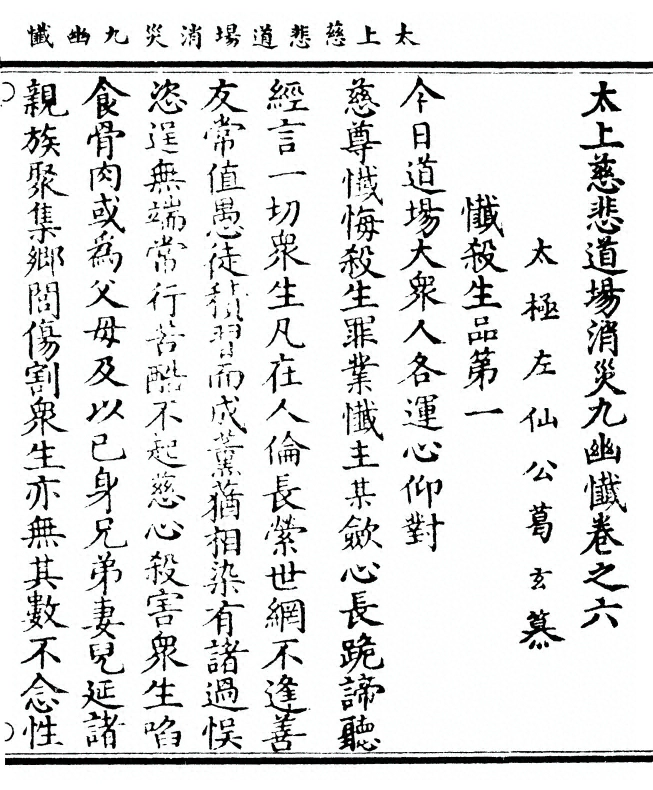 太上慈悲道場消災九幽懺
太上慈悲道場消災九幽懺卷之六
太極左仙公葛玄纂
懺殺生品第一
今日道場大衆人各運心仰對
慈尊懺悔殺生罪業懺主某斂心長跪諦聽
經言一切衆生凡在人倫長縈世網不逢善
友常值愚徒積習而成薰蕕相染有諸過悞
恣逞無端常行苦酷不起慈心殺害衆生啗
食骨肉或為父母及以己身兄弟妻兒延諸
親族聚集鄉閭傷割衆生亦無其數不念性